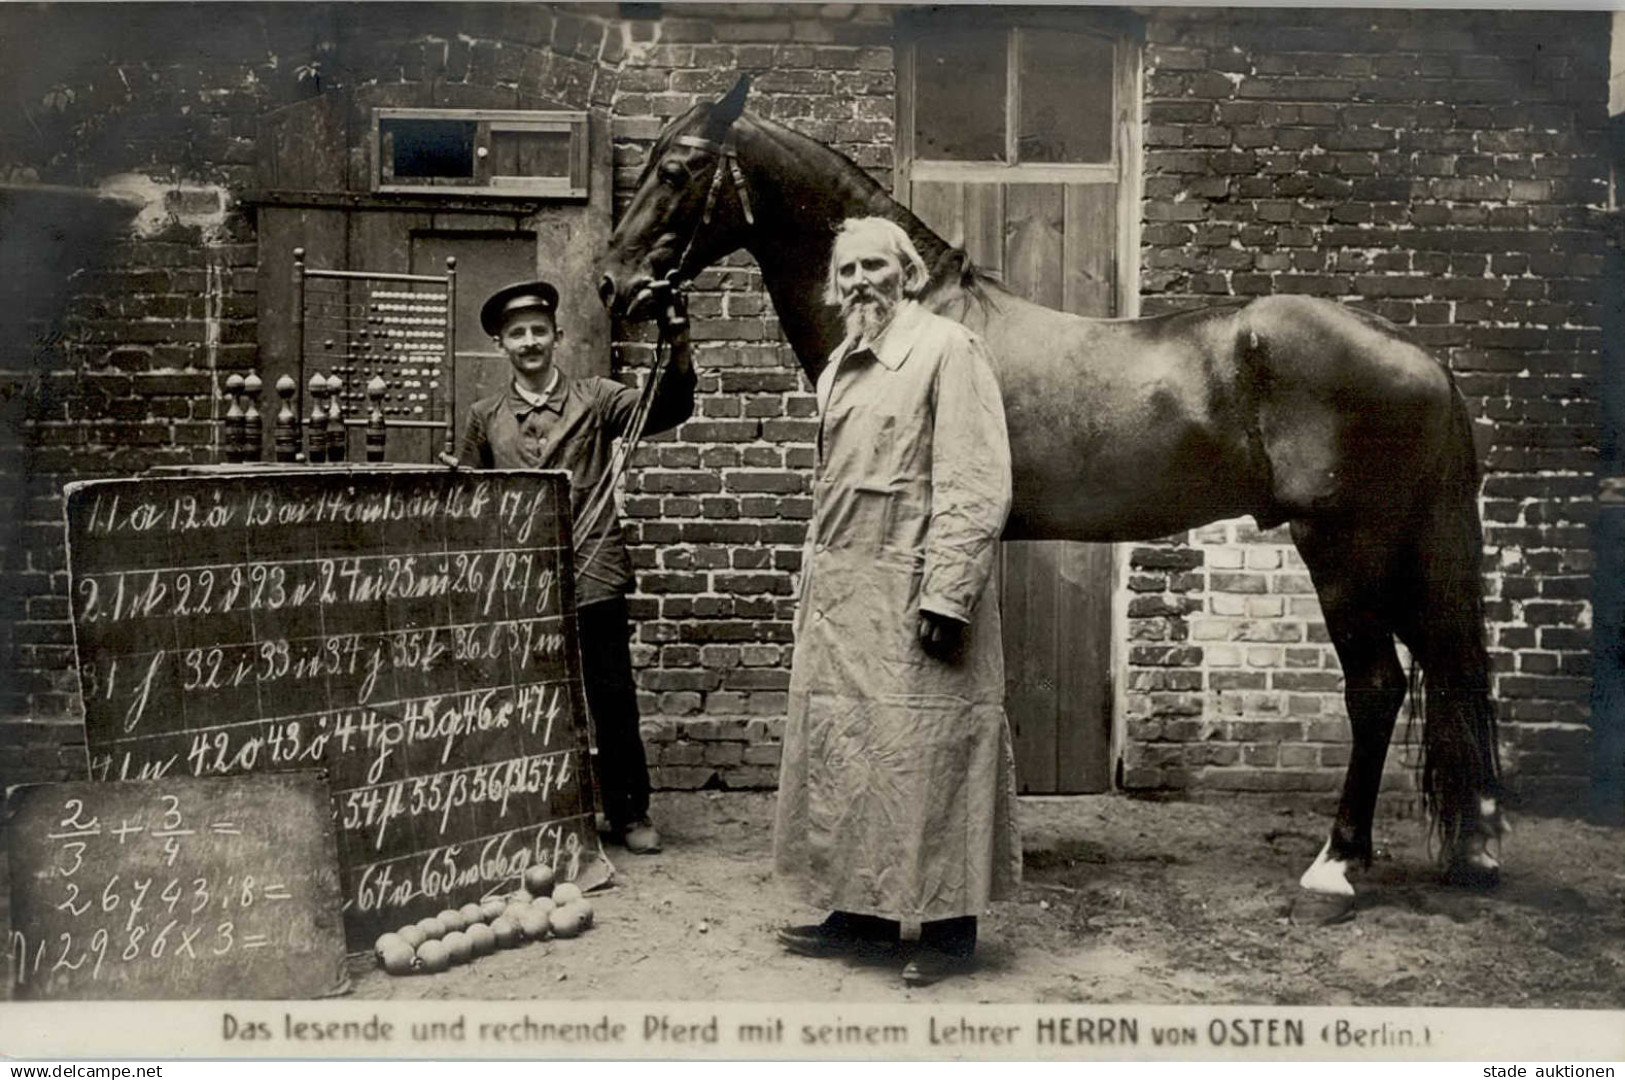 1.1 a 1.2 ä 1.3 au 1.4 äu 1.5 aü 1.6 b 1.7 ch
2.1 ck 2.2 d 2.3 e 2.4 ei 2.5 eu 2.6 f 2.7 g
3.1 h 3.2 i 3.3 ie 3.4 j 3.5 k 3.6 l 3.7 m
4.1 n 4.2 o 4.3 ö 4.4 p 4.5 q 4.6 r 4.7 s
5.4 5.5 ß 5.6 5.7 t
6.4 6.5 w 6.6 6.7 z
2/3 + 3/4 =
26743 : 8 =
12986 x 3 =
Das lesende und rechnende Pferd mit seinem Lehrer HERRN von OSTEN (Berlin.)
delcampe.net
stade auktionen